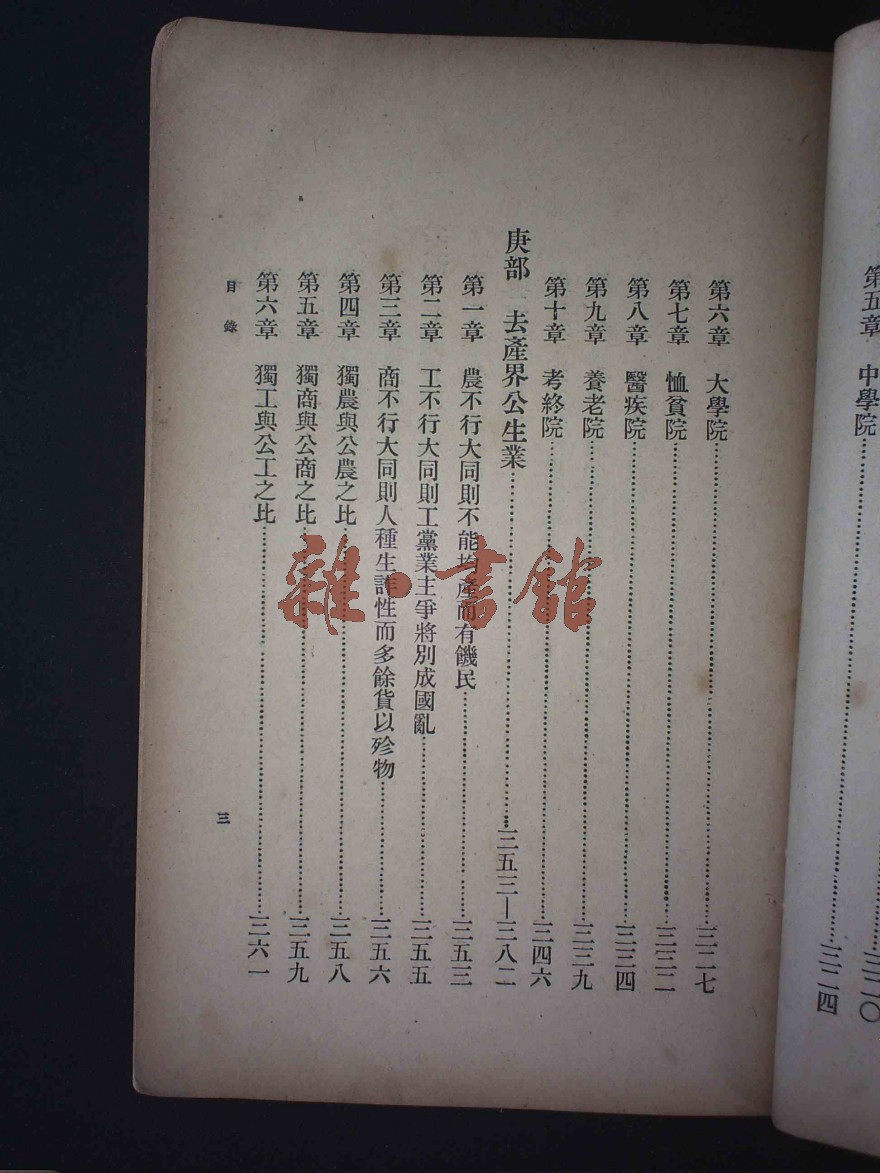 三二〇
第五章　中學院……三二四
第六章　大學院……三二七
第七章　恤貧院……三三二
第八章　醫疾院……三三四
第九章　養老院……三三九
第十章　考終院……三四六
庚部　去產界公生業……三五三—三八二
第一章　農不行大同則不能均產而有饑民……三五三
第二章　工不行大同則工黨業主爭將別成國亂……三五五
第三章　商不行大同則人種生詐性而多餘貨以殄物……三五六
第四章　獨農與公農之比……三五八
第五章　獨商與公商之比……三五九
第六章　獨工與公工之比……三六一
目錄
三
雜·書館